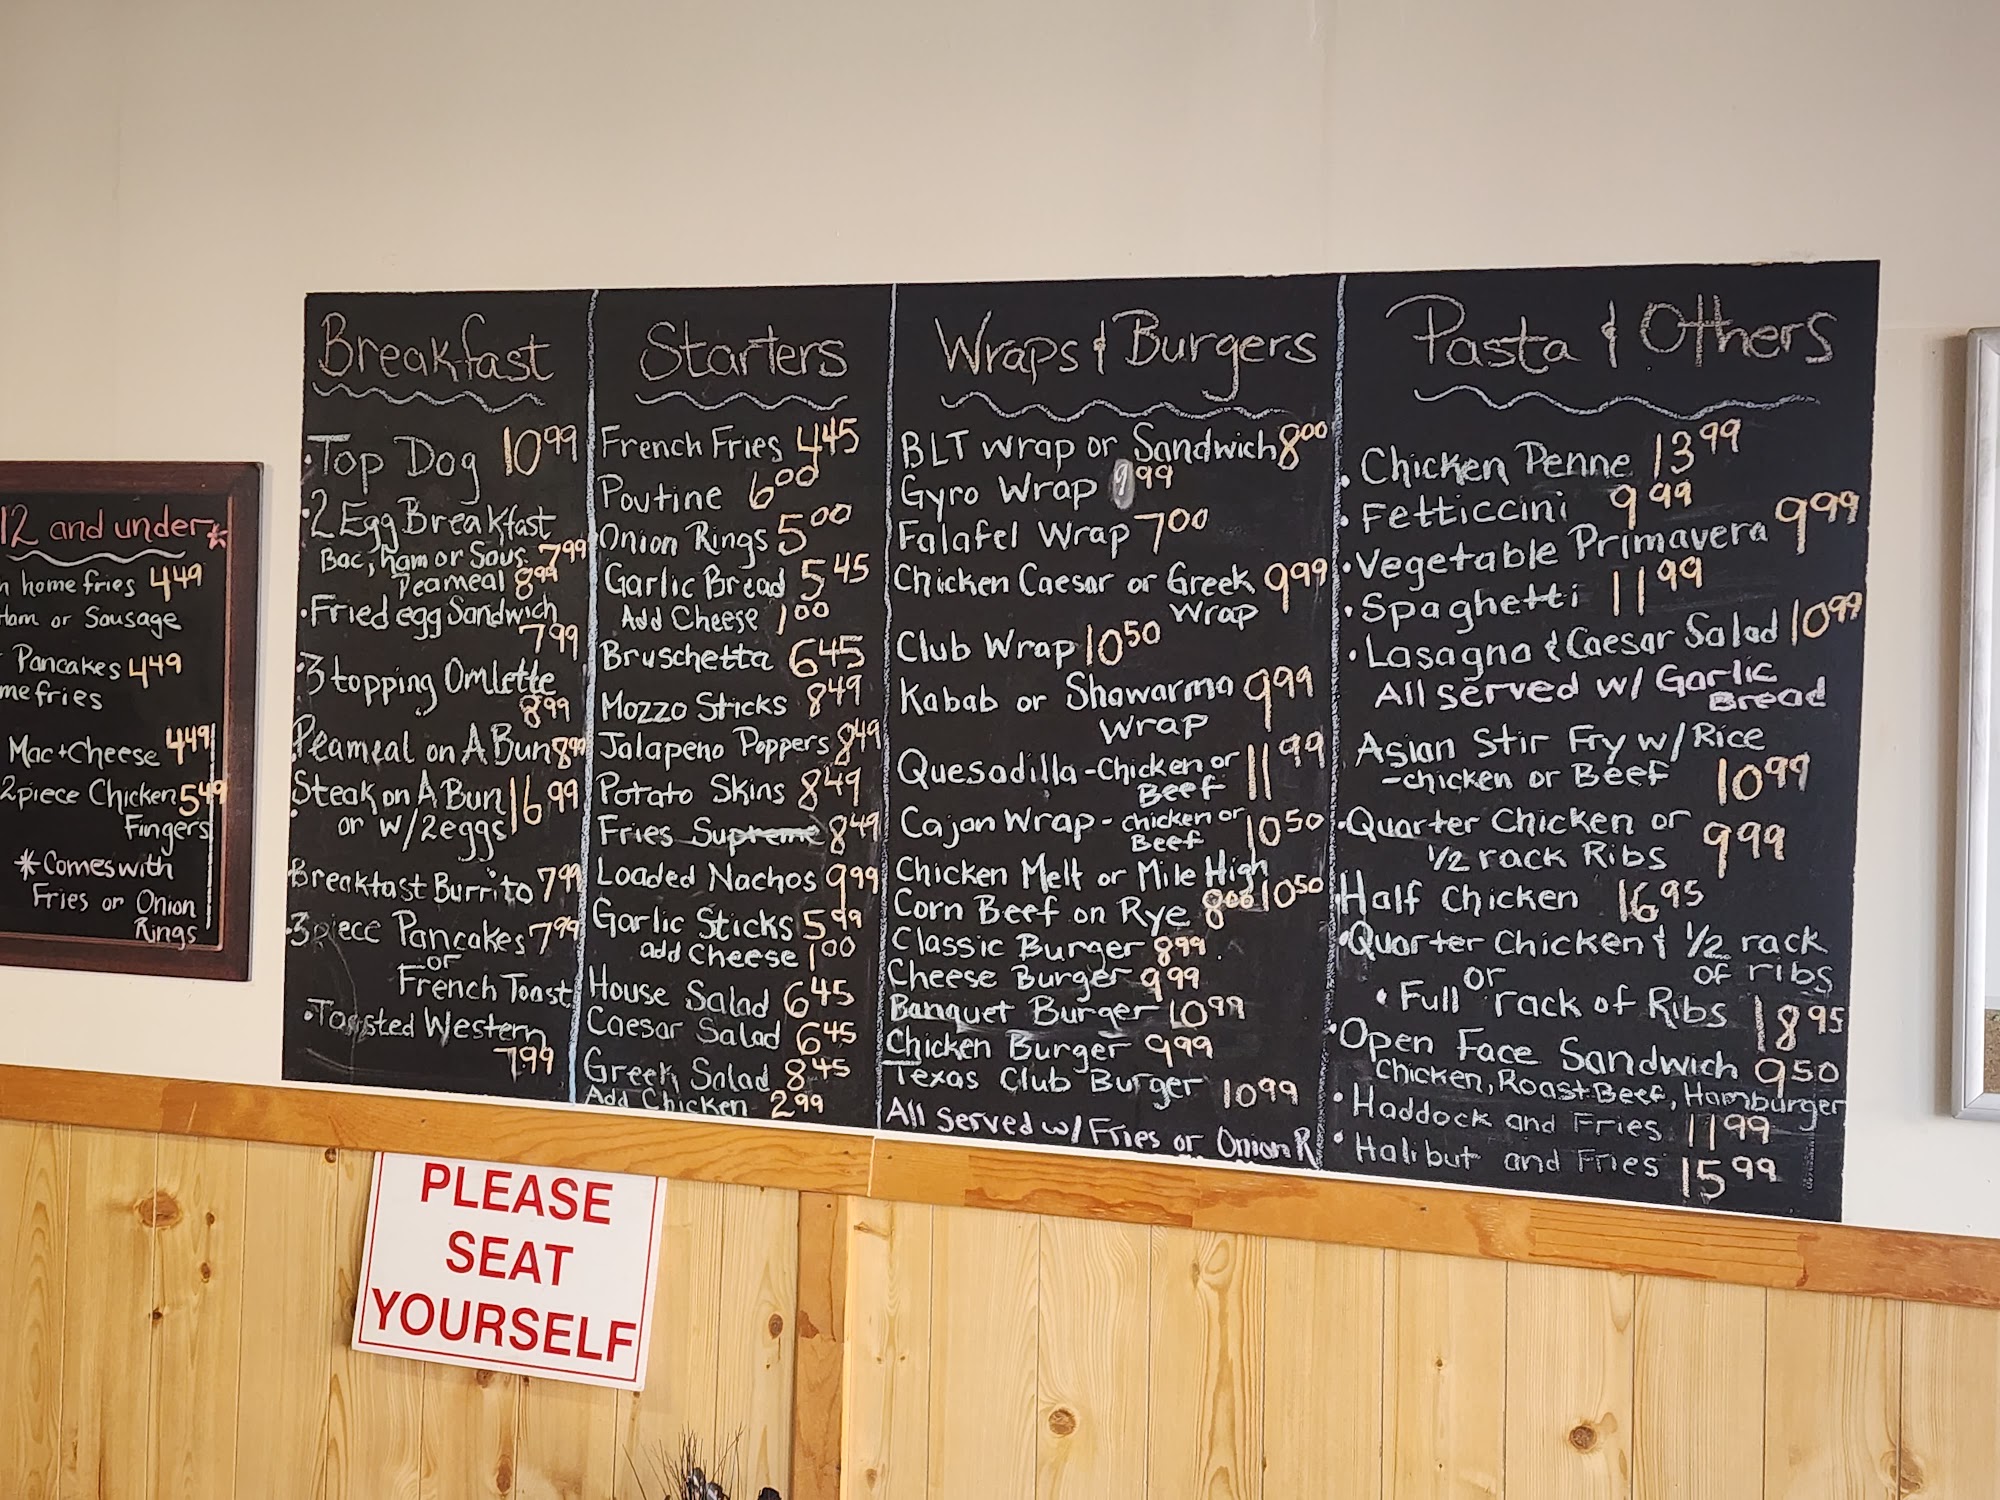 12 and under*
home fries 4.49
Ham or Sausage
Pancakes 4.49
me fries
Mac+Cheese 4.49
2 piece Chicken 5.49
Fingers
*Comes with
Fries or Onion
Rings
Breakfast
·Top Dog 10.99
·2 Egg Breakfast
Bac, ham or Saus. 7.99
Peameal 8.99
·Fried egg Sandwich
7.99
·3 topping Omlette
8.99
Peameal on A Bun 8.99
Steak on A Bun 16.99
or w/2eggs
Breakfast Burrito 7.99
·3 piece Pancakes 7.99
or
French Toast
·Toasted Western
7.99
Starters
French Fries 4.45
Poutine 6.00
Onion Rings 5.00
Garlic Bread 5.45
Add Cheese 1.00
Bruschetta 6.45
Mozzo Sticks 8.49
Jalapeno Poppers 8.49
Potato Skins 8.49
Fries Supreme 8.49
Loaded Nachos 9.99
Garlic Sticks 5.99
add Cheese 1.00
House Salad 6.45
Caesar Salad 6.45
Greek Salad 8.45
Add Chicken 2.99
Wraps & Burgers
BLT wrap or Sandwich 8.00
Gyro Wrap 9.99
Falafel Wrap 7.00
Chicken Caesar or Greek 9.99
Wrap
Club Wrap 10.50
Kabab or Shawarma 9.99
Wrap
Quesadilla - Chicken or 11.99
Beef
Cajan Wrap - chicken or 10.50
Beef
Chicken Melt or Mile High
Corn Beef on Rye 8.00 10.50
Classic Burger 8.99
Cheese Burger 9.99
Banquet Burger 10.99
Chicken Burger 9.99
Texas Club Burger 10.99
All Served w/ Fries or Onion R
Pasta & Others
·Chicken Penne 13.99
·Fetticcini 9.99
·Vegetable Primavera 9.99
·Spaghetti 11.99
·Lasagna & Caesar Salad 10.99
All served w/ Garlic
Bread
Asian Stir Fry w/ Rice
-chicken or Beef 10.99
·Quarter Chicken or 9.99
1/2 rack Ribs
Half Chicken 16.95
·Quarter Chicken & 1/2 rack
or of ribs
·Full rack of Ribs 18.95
·Open Face Sandwich 9.50
Chicken, Roast Beef, Hamburger
·Haddock and Fries 11.99
·Halibut and Fries 15.99
PLEASE
SEAT
YOURSELF